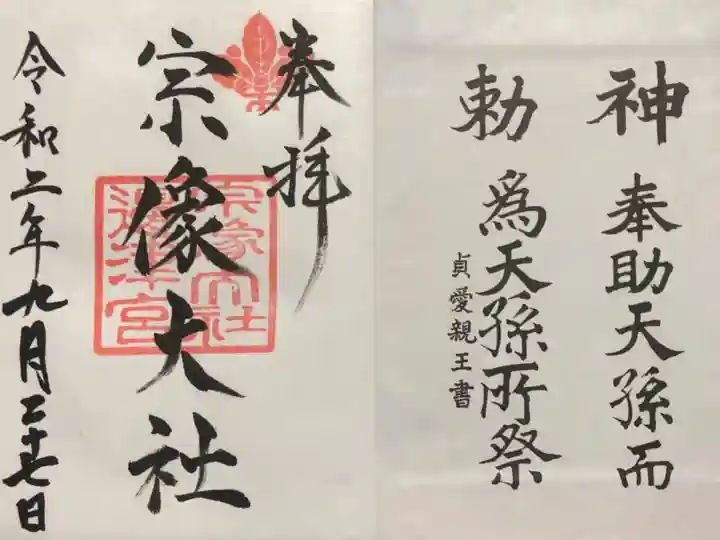 神
奉助天孫而
勅
爲天孫所祭
貞愛親王書
奉拝
宗像大社
宗像大社
邊津宮
令和二年九月二十七日